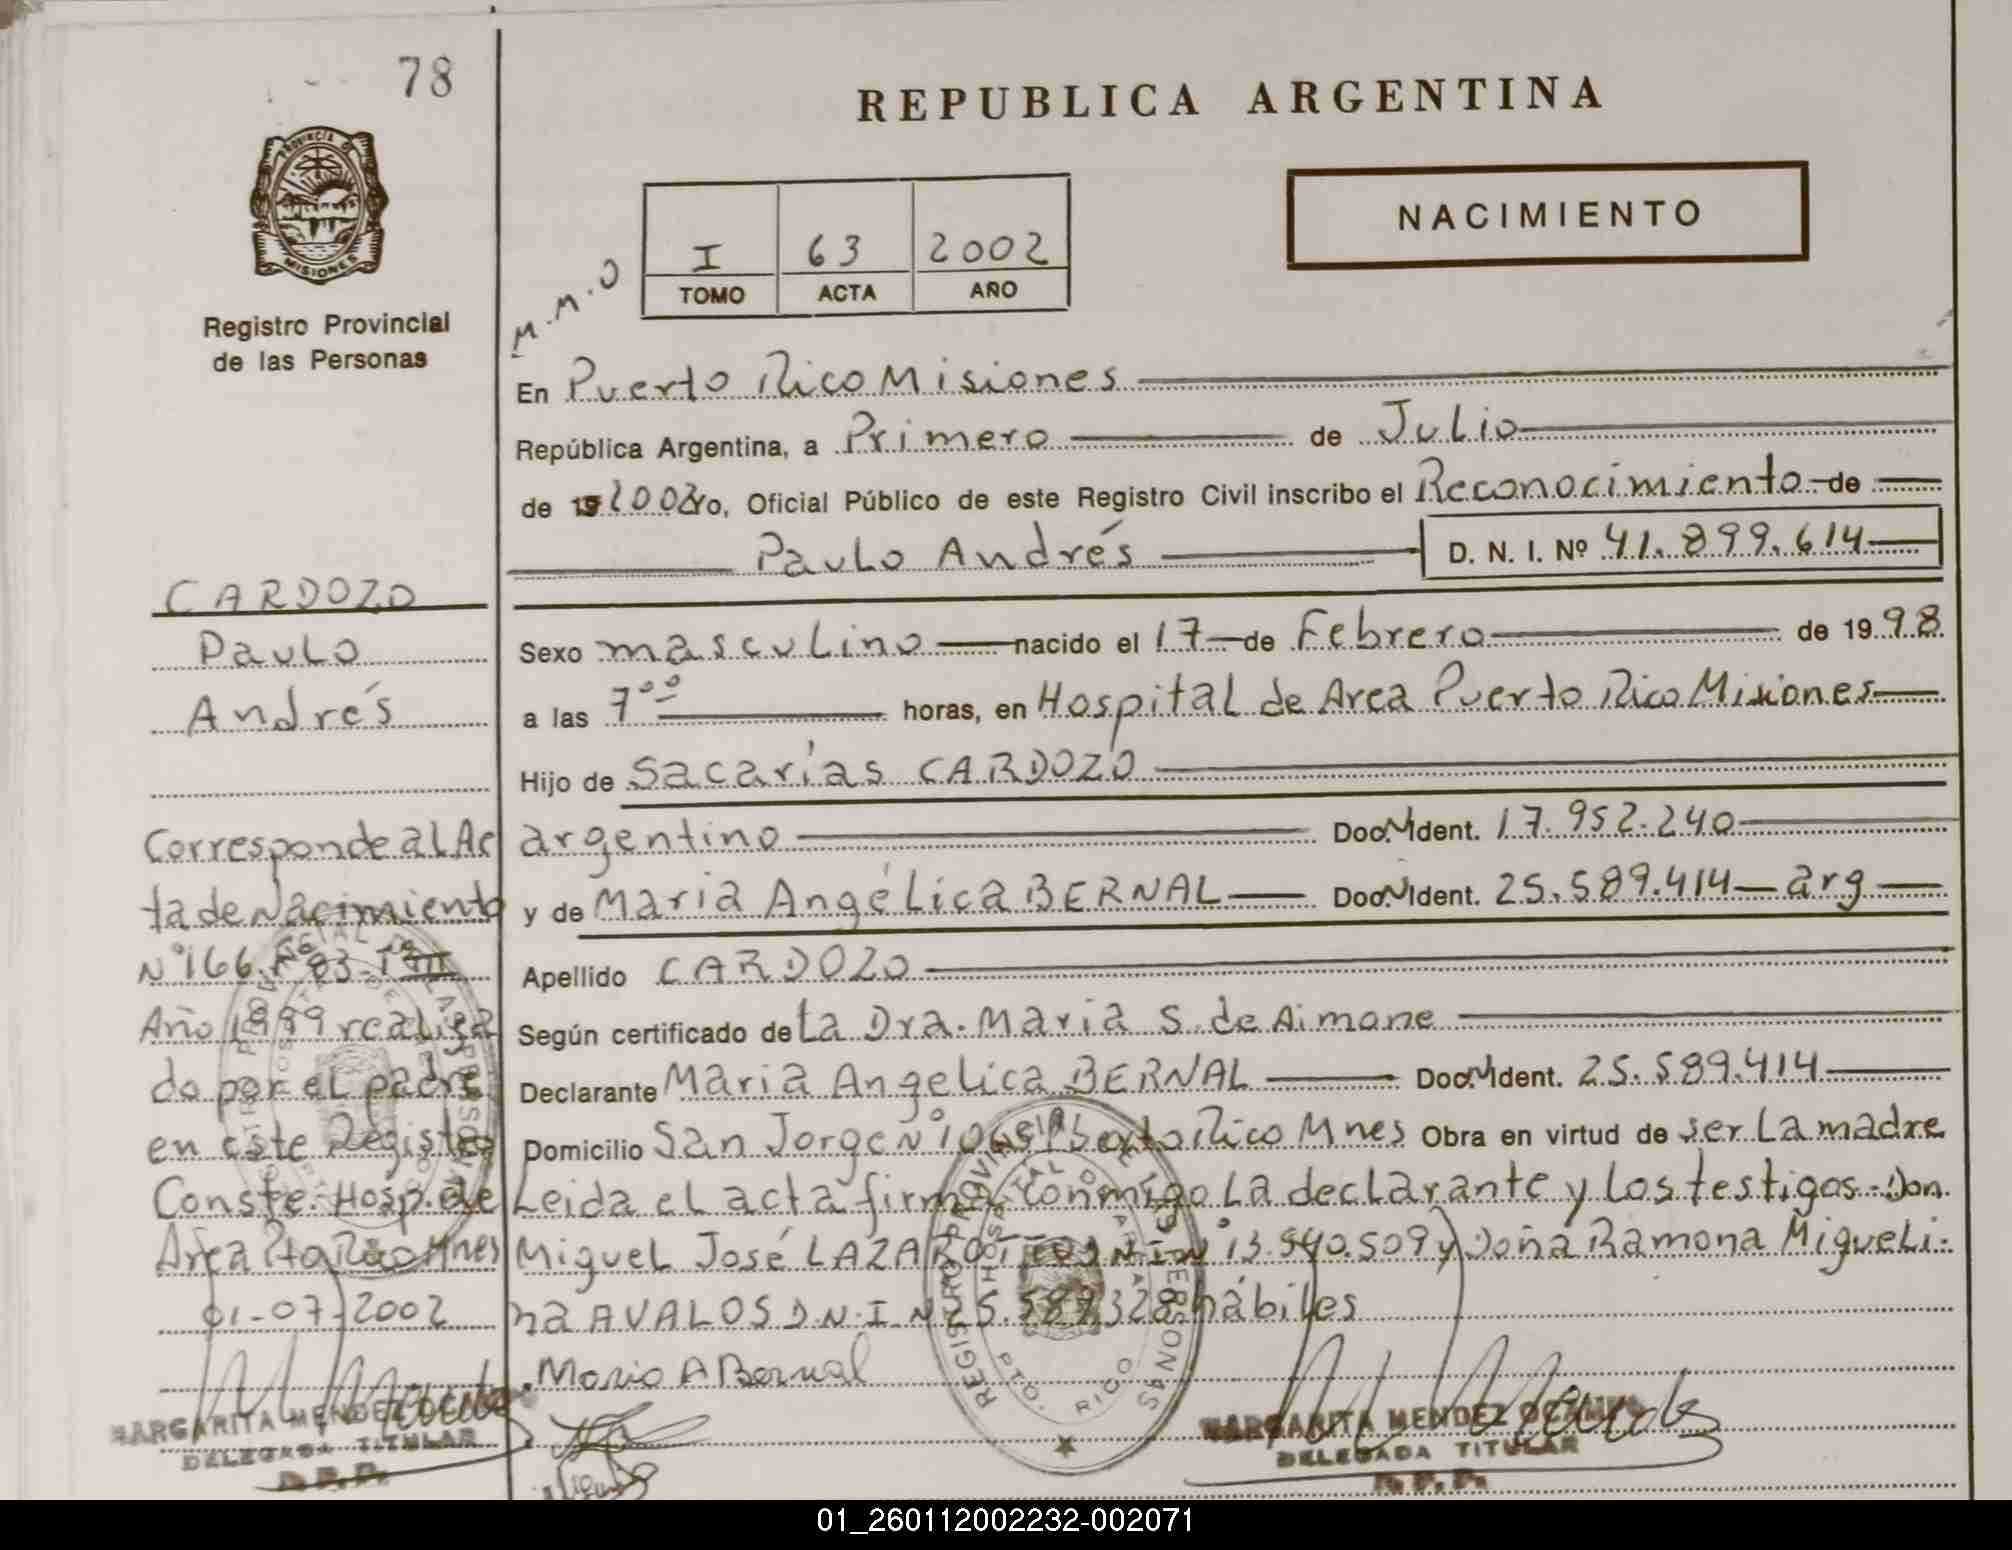 78
REPUBLICA ARGENTINA
PROVINCIA DE
MISIONES
Registro Provincial
de las Personas
NACIMIENTO
I 63 2002
TOMO ACTA AÑO
M.M.O
En Puerto Rico Misiones
República Argentina, a Primero de Julio
de 19 2002 Yo, Oficial Público de este Registro Civil inscribo el Reconocimiento de
Paulo Andrés D. N. I. Nº 41.899.614
CARDOZO
Paulo
Andrés
Sexo masculino nacido el 17 de Febrero de 1998
a las 7°° horas, en Hospital de Area Puerto Rico Misiones
Hijo de Sacarías CARDOZO
argentino Doc. N Ident. 17.952.240
y de Maria Angélica BERNAL Doc. N Ident. 25.589.414 arg
Apellido CARDOZO
Según certificado de La Dra. Maria S. de Aimone
Declarante Maria Angelica BERNAL Doc. N Ident. 25.589.414
Domicilio San Jorge N° Rico Mnes Obra en virtud de ser La madre
Leida el acta firma conmigo La declarante y Los testigos - Don
Miguel José LAZAROTTO D.N.I.N° 13.940.509 y Doña Ramona Migueli-
na AVALOS D.N.I.N 25. hábiles
Corresponde al Ac
ta de Nacimiento
N° 166 F° 83 - T°
Año 1999 realiza
do por el padre
en este Registro
Conste. Hosp. de
Area Pto Rico Mnes
01-07-2002
Maria A Bernal
REGISTRO PROVINCIAL DE LAS PERSONAS
HOSPITAL DE AREA
PTO. RICO
MARGARITA MENDEZ
DELEGADA TITULAR
MARGARITA MENDEZ OCAMPO
DELEGADA TITULAR
01_260112002232-002071